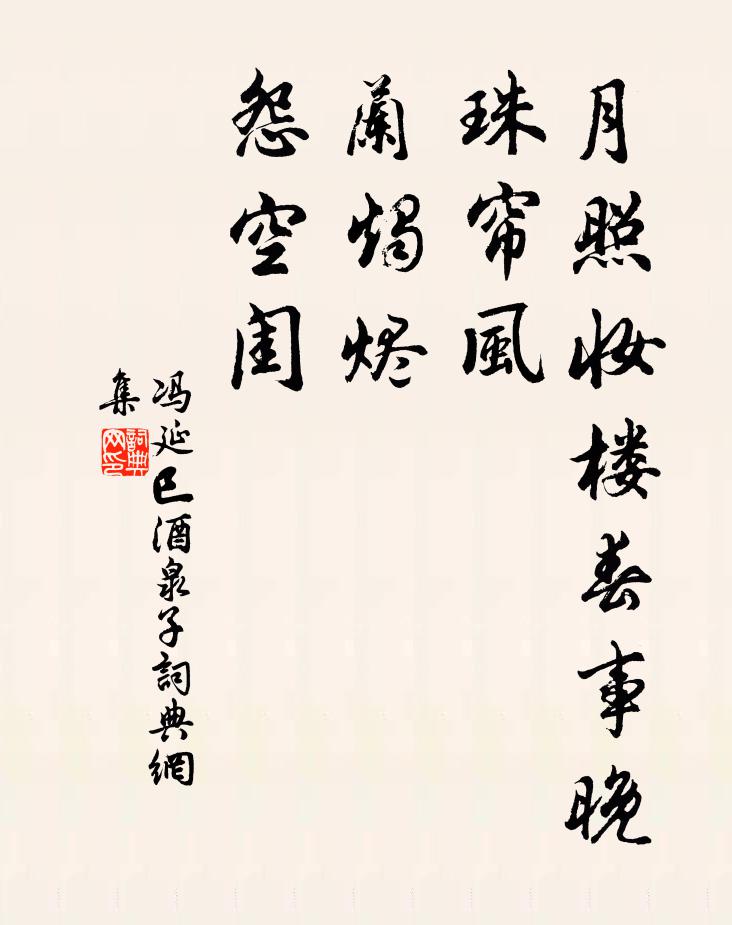 月照妝楼春事晚
珠帘風
蘭燭烬
怨空闺
冯延巳酒泉子詞典網
集
詞典
网印